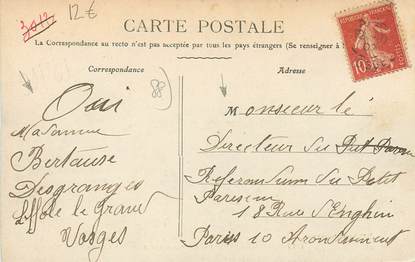 30.12
12 €
CARTE POSTALE
La Correspondance au recto n'est pas acceptée par tous les pays étrangers (Se renseigner à
Correspondance
Adresse
RÉPUBLIQUE FRANÇAISE
10
88
Oui
Madame
Bertause
Desgranges
Liffole le Grand
Vosges
Monsieur le
Directeur du Petit Parisien
Referendum du Petit
Parisien
18 Rue d'Enghin
Paris 10 Arondissment